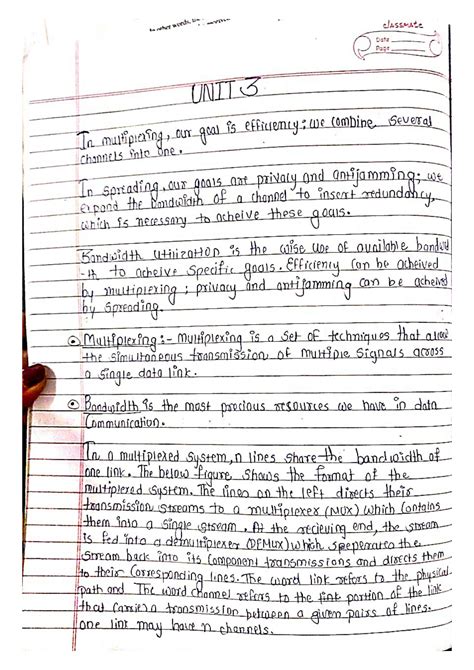 classmate
Date
Page
UNIT 3
In multiplexing, our goal is efficiency; we combine several
channels into one.
In spreading, our goals are privacy and antijamming; we
expand the bandwidth of a channel to insert redundancy,
which is necessary to acheive these goals.
Bandwidth utilization is the wise use of available bandwid
-th to acheive specific goals. Efficiency can be acheived
by multiplexing; privacy and antijamming can be acheived
by spreading.
Multiplexing:- Multiplexing is a set of techniques that allow
the simultaneous transmission of multiple signals across
a single data link.
Bandwidth is the most precious resources we have in data
communication.
In a multiplexed system, n lines share the bandwidth of
one link. The below figure shows the format of the
multiplexed system. The lines on the left directs their
transmission streams to a multiplexer (MUX) which contains
them into a single stream. At the recieving end, the stream
is fed into a demultiplexer (DEMUX) which seperates the
stream back into its component transmissions and directs them
to their corresponding lines. The word link refers to the physical
path and. The word channel refers to the portion of the link
that carries a transmission between a given pairs of lines.
one link may have n channels.